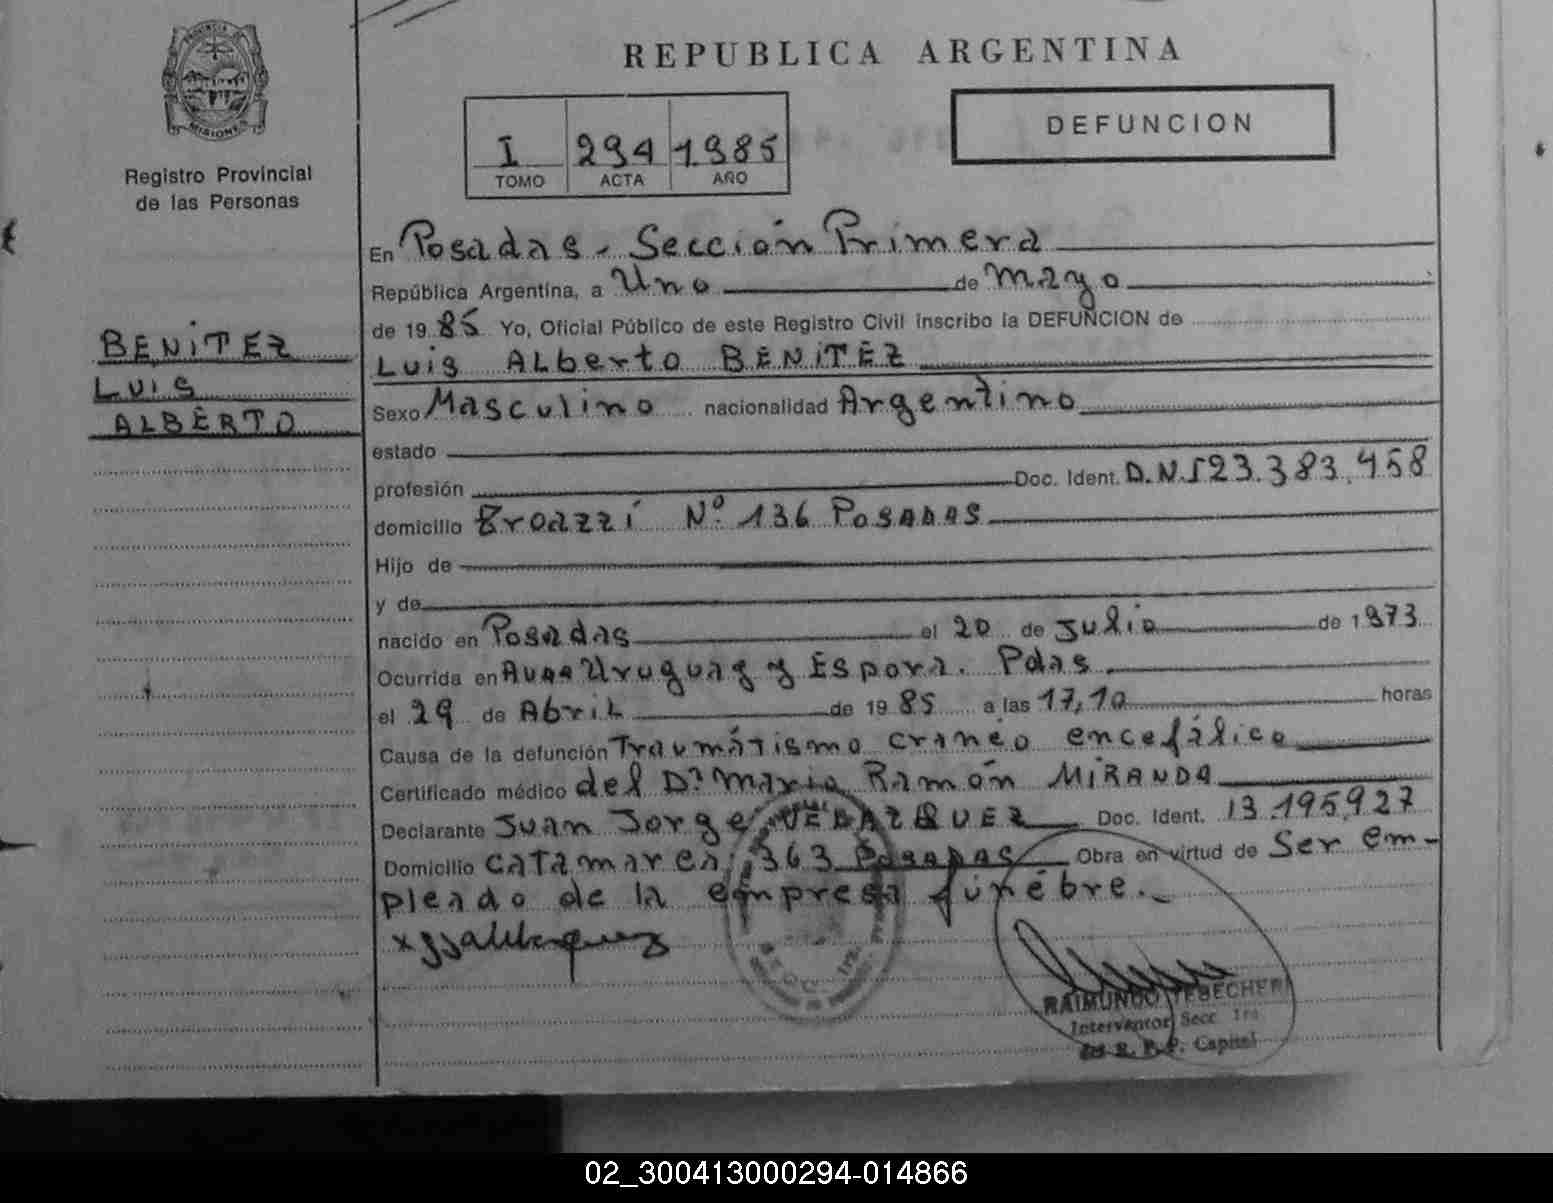 PROVINCIA DE
MISIONES
Registro Provincial
de las Personas
BENITEZ
LUIS
ALBERTO
REPUBLICA ARGENTINA
I 294 1985
TOMO ACTA AÑO
DEFUNCION
En Posadas - Sección Primera
República Argentina, a Uno de Mayo
de 1985 Yo, Oficial Público de este Registro Civil inscribo la DEFUNCION de
Luis ALberto BENITEZ
Sexo Masculino nacionalidad Argentino
estado
profesión Doc. Ident. D.N.I 23.383.458
domicilio N° 136 POSADAS
Hijo de
y de
nacido en Posadas el 20 de Julio de 1973
Ocurrida en Uruguay y Espora. Pdas
el 29 de Abril de 1985 a las 17,10 horas
Causa de la defunción Traumátismo cráneo encefálico
Certificado médico del Dr Mario Ramón MIRANDA
Declarante Juan Jorge VELAZQUEZ Doc. Ident. 13.195.927
Domicilio Catamarca 363 POSADAS Obra en virtud de Ser em-
pleado de la empresa fúnebre.-
RAIMUNDO YEBECHERI
Interventor Secc. 1ra
R. P. P. Capital
02_300413000294-014866